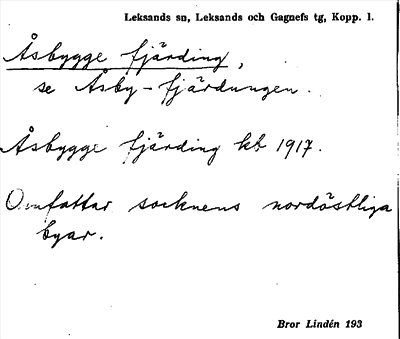 Leksands sn, Leksands och Gagnefs tg, Kopp. l.
Åsbygge fjärding,
se Åsby-fjärdungen.
Åsbygge fjärding kb 1917.
Omfattar socknens nordöstliga
byar.
Bror Lindén 193